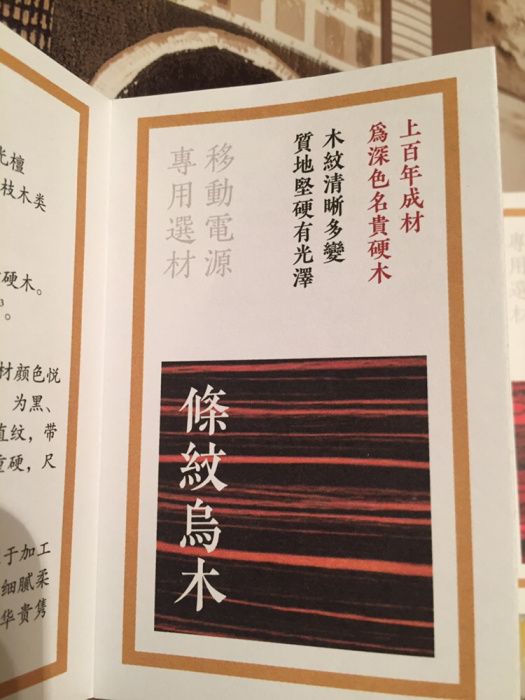 上百年成材
爲深色名貴硬木
木紋清晰多變
質地堅硬有光澤
移動電源
專用選材
條紋烏木
檀
枝木类
硬木。
材颜色悦
为黑、
直纹，带
重硬，尺
于加工
细腻柔
华贵隽